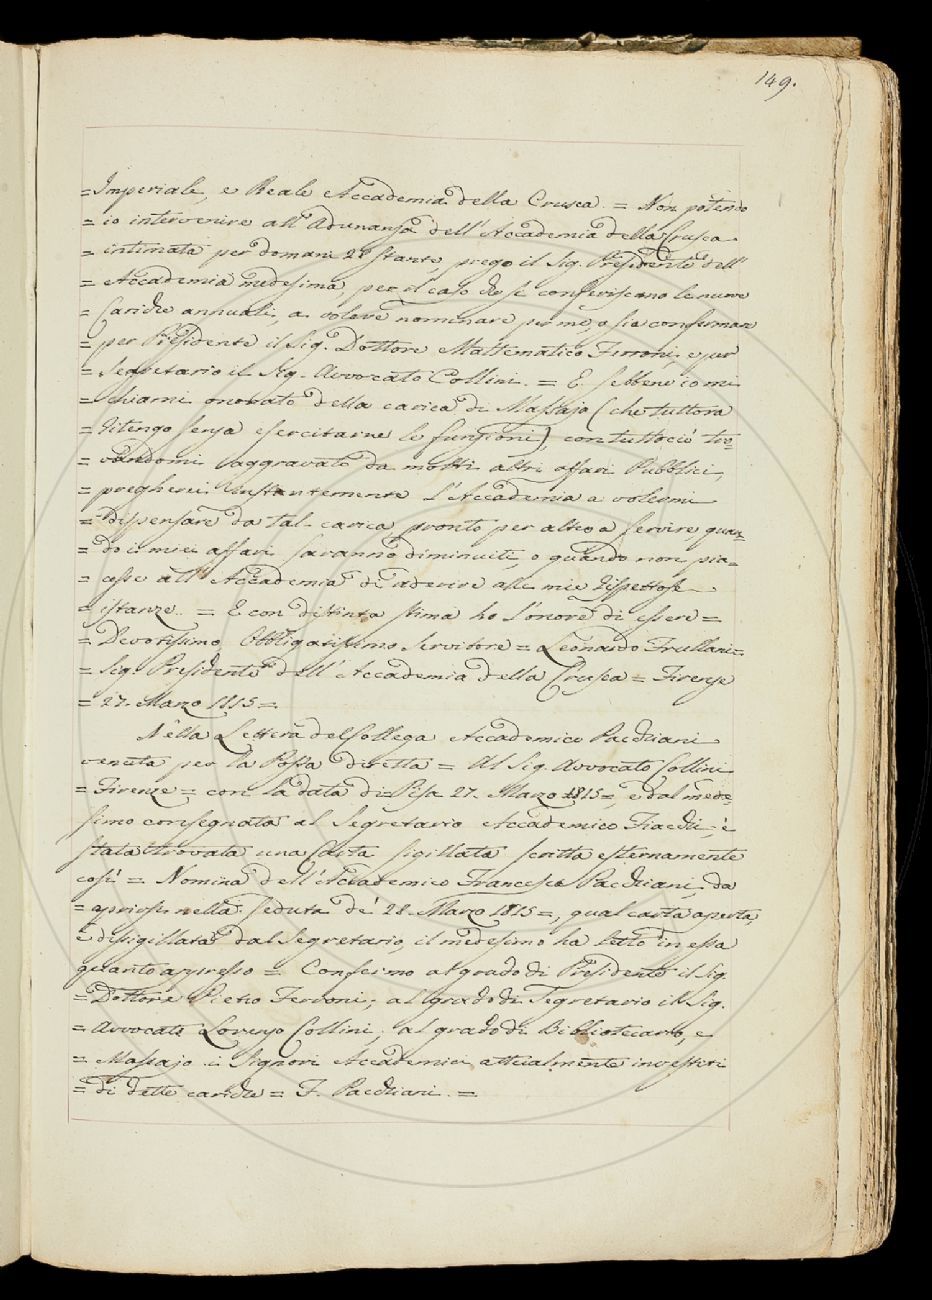 149.
=Imperiale, e Reale Accademia della Crusca. = Non potendo
= io intervenire all'Adunanza dell'Accademia della Crusca
= intimata per domani 28 stante, prego il Sig. Presidente dell'
= Accademia medesima, per il caso che si conferiscano le nuove
= Cariche annuali, a volere nominare per me, o sia confermare
= per Presidente il Sig. Dottore Mattematico Ferroni, e per
= Segretario il Sig. Avvocato Collini. = E sebbene io mi
= chiami onorato della carica di Massajo (che tuttora
= ritengo senza esercitarne le funzioni) con tuttociò tro=
= vandomi aggravato da molti altri affari Pubblici,
= pregherei instantemente l'Accademia a volermi
= dispensare da tal carica pronto per altro a servire quan=
= do i miei affari saranno diminuiti, o quando non pia=
= cesse all'Accademia di aderire alle mie rispettose
= istanze. = E con distinta stima ho l'onore di essere =
= Devotissimo Obbligatissimo Servitore = Leonardo Frullani =
= Sig. Presidente dell'Accademia della Crusca = Firenze
= 27. Marzo 1815 =
Nella Lettera del Collega Accademico Pacchiani
venuta per la Posta diretta = Al Sig. Avvocato Collini
= Firenze = con la data di Pisa 27. Marzo 1815 =, e dal mede=
simo consegnata al Segretario Accademico Fiacchi, è
stata trovata una Carta sigillata scritta esternamente
così = Nomina dell'Accademico Francesco Pacchiani, da
= aprirsi nella seduta de' 28. Marzo 1815 =, qual carta aperta,
e disigillata dal Segretario, il medesimo ha letto in essa
quanto appresso = Confermo al grado di Presidente il Sig.
= Dottore Pietro Ferroni; al grado di Segretario il Sig.
= Avvocato Lorenzo Collini; al grado di Bibliotecario, e
= Massajo i Signori Accademici attualmente investiti
= di dette cariche = F. Pacchiani. =